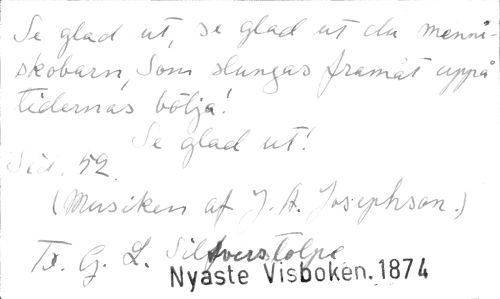 Se glad ut, se glad ut du menni-
skobarn, Som slungas framåt uppå
tidernas bölja!
Se glad ut!
Sid. 52.
(Musiken af J. A. Josephson.)
G. L. Silfverstolpe
Nyaste Visboken. 1874